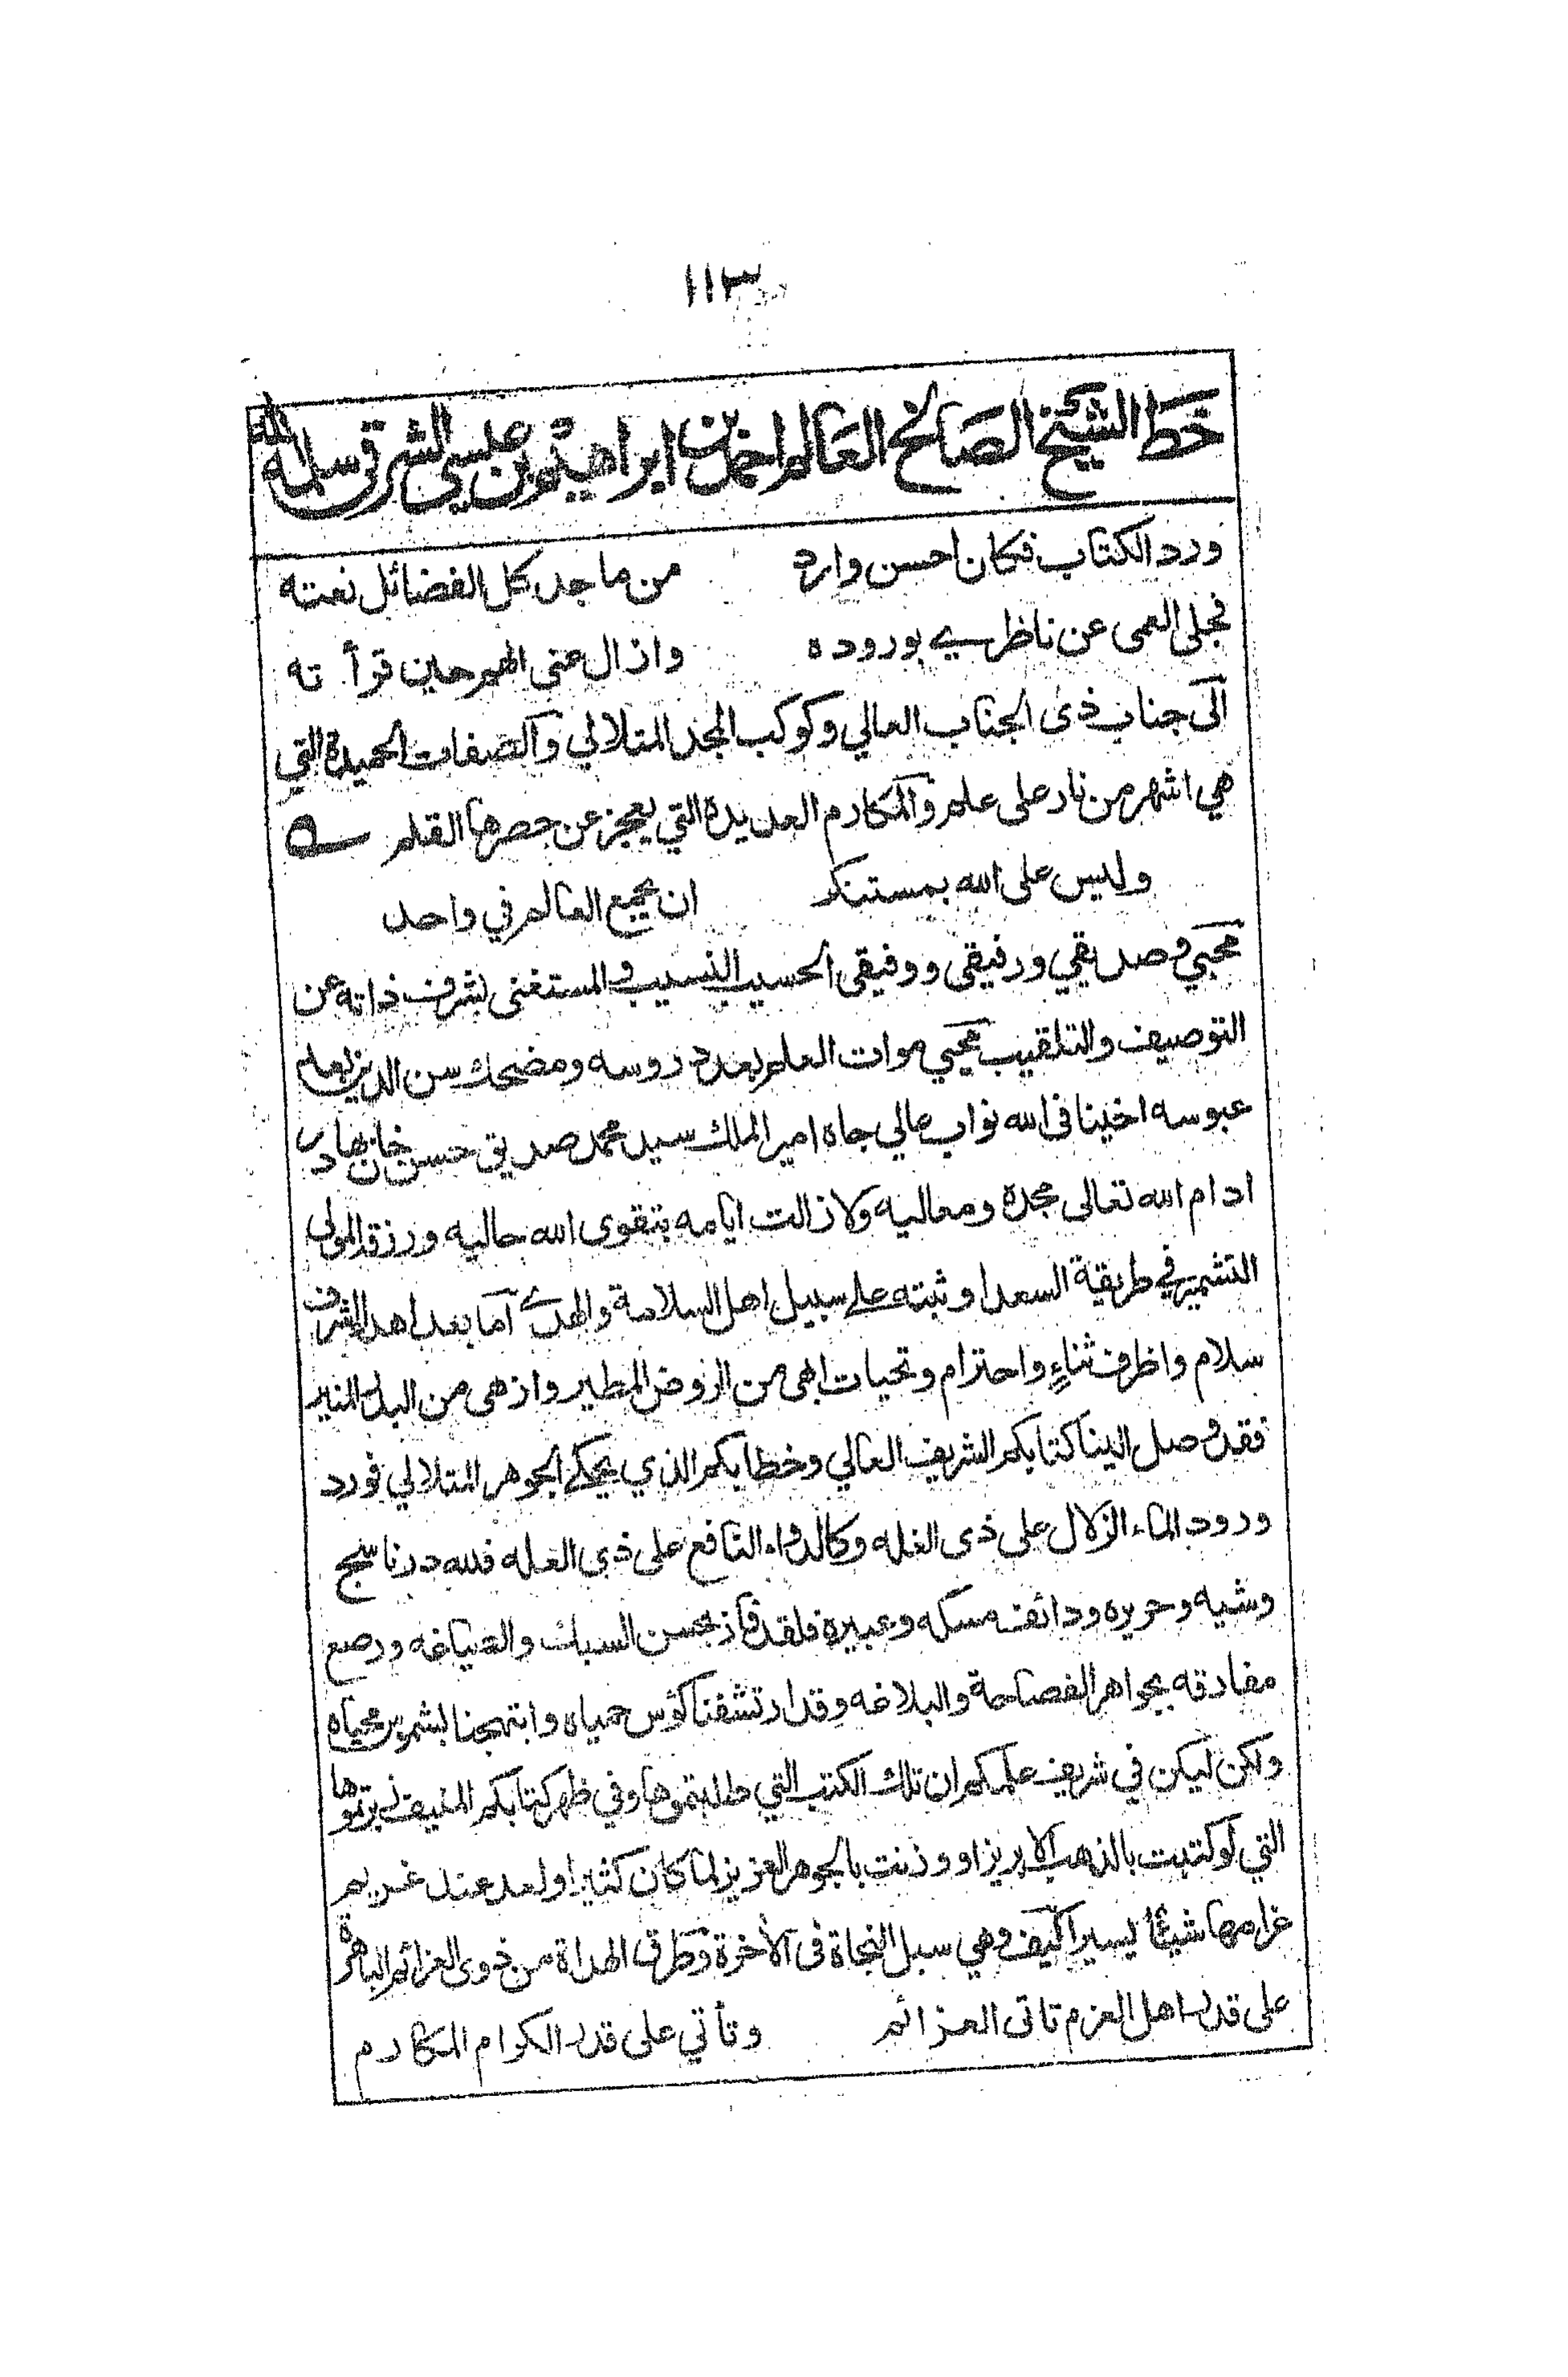 ١١٣
خط الشيخ الصالح العالم احمد بن ابراهيم بن عيسى الشرقي سلمه الله
ورد الكتاب فكان احسن وارد من ماجد كل الفضائل نعته
فجلى العمى عن ناظري بوروده وازال عني الهم حين قرأ ته
الى جناب ذى الجناب العالي وكوكب المجد المتلالي والصفات الحميدة التي
هي اشهر من نار على علم والمكارم العديدة التي يعجز عن حصرها القلم
وليس على الله بمستنكر ان يجمع العالم في واحد
محبي وصديقي ورفيقى ووفيقى الحسيب النسيب والمستغنى بشرف ذاته عن
التوصيف والتلقيب محيي موات العلم بعد دروسه ومضحك سن الدين بعد
عبوسه اخينا فى الله نواب عالي جاه امير الملك سيد محمد صديق حسن خان بهادر
ادام الله تعالى مجده ومعاليه ولا زالت ايامه بتقوى الله حاليه ورزقه المولى
التشمير في طريقة السعدا وثبته على سبيل اهل السلامة والهدى اما بعد اهداء اشرف
سلام واظرف ثناءٍ واحترام وتحيات ابهى من الروض المطير وازهى من البدر المنير
فقد وصل الينا كتابكم الشريف العالي وخطابكم الذي يحكي الجوهر المتلالي فورد
ورود الماء الزلال على ذى الغله وكالدواء النافع على ذى العله فلله در ناسج
وشيه وحريره ودائف مسكه وعبيره فلقد فاز بحسن السبك والصياغه ورصع
مفارقه بجواهر الفصاحة والبلاغه وقد ارتشفنا كؤس حمياه وابتهجنا بشمس محياه
ولكن ليكن في شريف علمكم ان تلك الكتب التي طلبتموها وفي ظهر كتابكم المنيف زبرتموها
التي لو كتبت بالذهب الابريز او وزنت بالجوهر العزيز لما كان كثيرا ولعد عند غريم
غرامها شيئا يسيرا كيف وهي سبل النجاة فى الآخرة وطرق الهداة من ذوى العزائم الباهرة
على قدر اهل العزم تاتى العزائم وتأتي على قدر الكرام المكارم